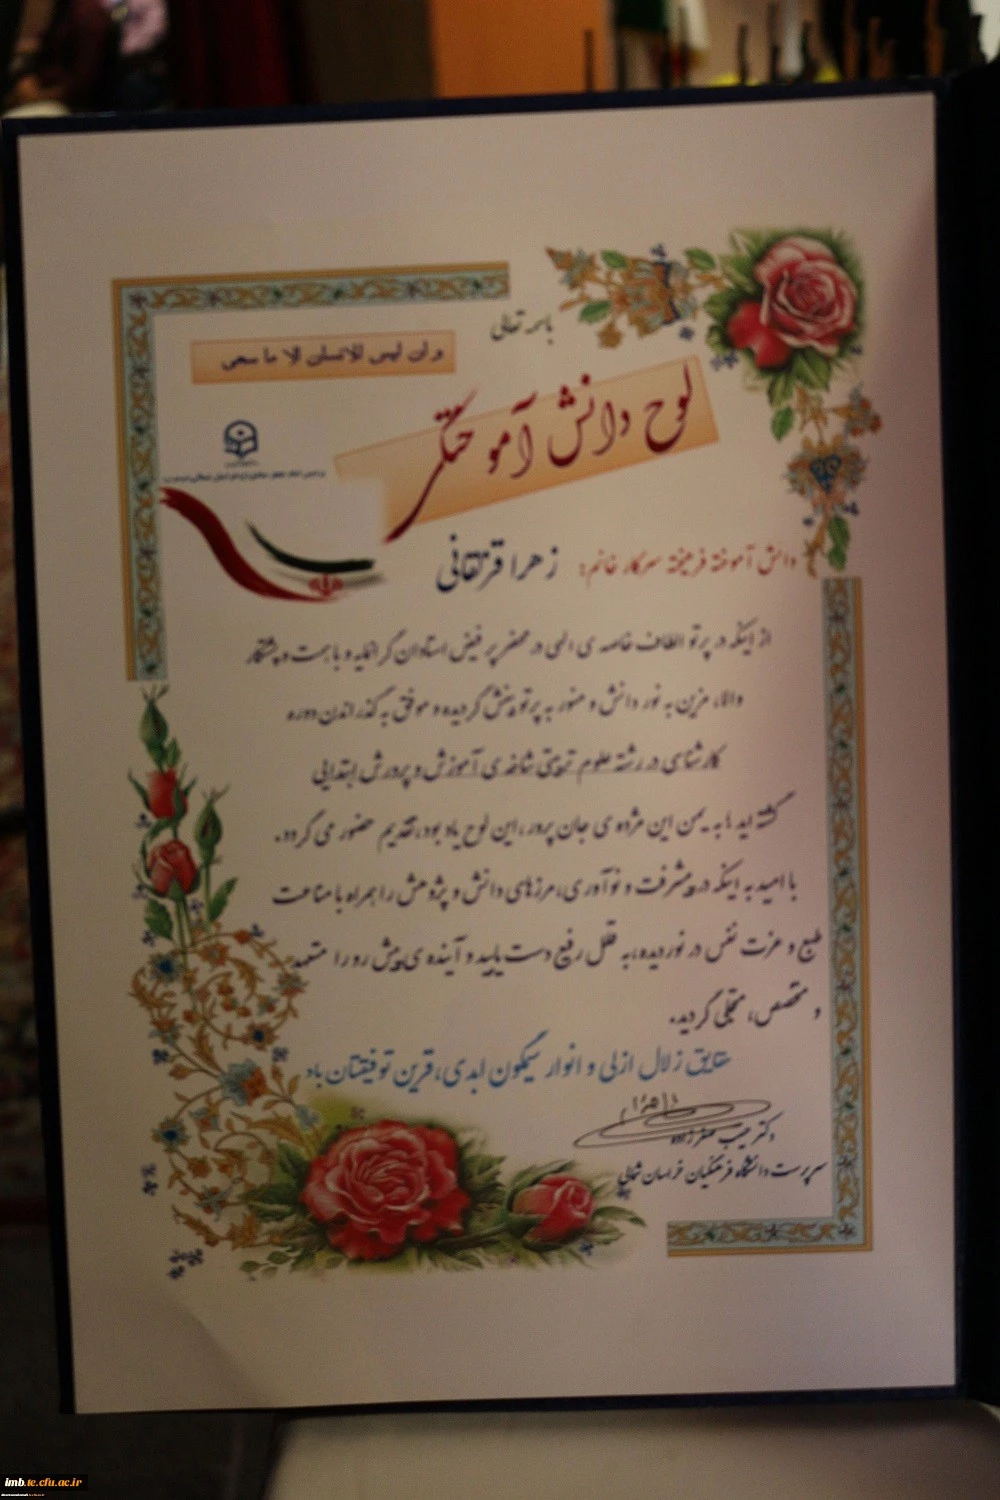 باسمه تعالی
و ان لیس للانسان الا ما سعی
لوح دانش آموختگی
دانش آموخته فرهیخته سرکار خانم: زهرا قرنقانی
از اینکه در پرتو الطاف خاصه ی الهی در محضر پر فیض استادان گرانمایه و با همت و پشتکار
والا، مزین به نور دانش و منور به پرتو بینش گردیده و موفق به گذراندن دوره
کارشناسی در رشته علوم تربیتی شاخه ی آموزش و پرورش ابتدایی
گشته اید به یمن این مژده ی جان پرور، این لوح یادبود، تقدیم حضور می گردد.
با امید به اینکه در پیشرفت و نوآوری، مرزهای دانش و پژوهش را همراه با مناعت
طبع و عزت نفس در نوردیده، به قلل رفیع دست یابید و آینده ی پیش رو را متعهد
و متخصص، متجلی گردید.
حقایق زلال ازلی و انوار نیلگون ابدی، قرین توفیقتان باد
دکتر حبیب صفرزاده
سرپرست دانشگاه فرهنگیان خراسان شمالی
imb.tc.cfu.ac.ir